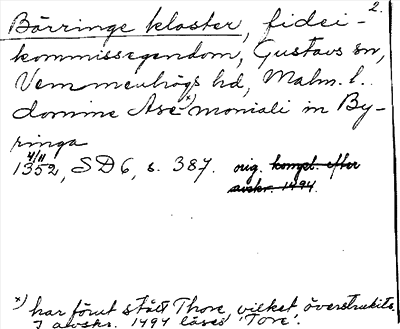 2.
Börringe kloster, fidei-
kommissegendom, Gustavs sn,
Vemmenhögs hd, Malm. l.
domine Ase x) moniali in By-
ringa
4/11
1352, SD 6, s. 387. orig. kompl. efter
avskr. 1494.
x) har förut stått Thore, vilket överstrukits.
I avskr. 1494 läses 'Tore'.